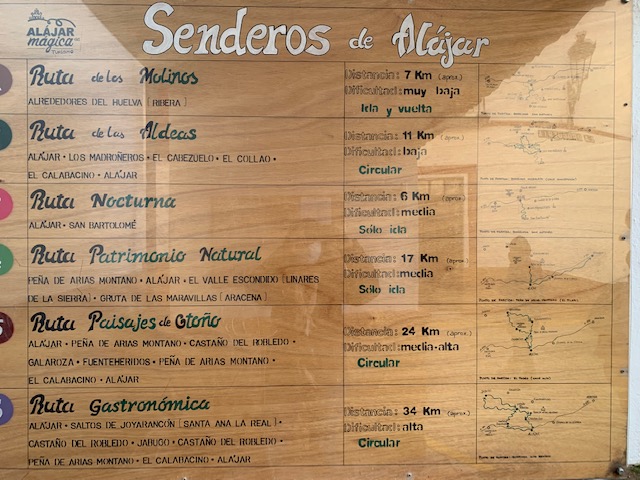 ALÁJAR
mágica
Senderos de Alájar
Ruta de los Molinos
ALREDEDORES DEL HUELVA [RIBERA]
Distancia: 7 Km (aprox.)
Dificultad: muy baja
Ida y vuelta
Ruta de las Aldeas
ALÁJAR • LOS MADROÑEROS • EL CABEZUELO • EL COLLAO •
EL CALABACINO • ALÁJAR
Distancia: 11 Km (aprox.)
Dificultad: baja
Circular
Ruta Nocturna
ALÁJAR • SAN BARTOLOMÉ
Distancia: 6 Km (aprox.)
Dificultad: media
Sólo ida
Ruta Patrimonio Natural
PEÑA DE ARIAS MONTANO • ALÁJAR • EL VALLE ESCONDIDO [LINARES
DE LA SIERRA] • GRUTA DE LAS MARAVILLAS [ARACENA]
Distancia: 17 Km (aprox.)
Dificultad: media
Sólo ida
Ruta Paisajes de Otoño
ALÁJAR • PEÑA DE ARIAS MONTANO • CASTAÑO DEL ROBLEDO •
GALAROZA • FUENTEHERIDOS • PEÑA DE ARIAS MONTANO •
EL CALABACINO • ALÁJAR
Distancia: 24 Km (aprox.)
Dificultad: media-alta
Circular
Ruta Gastronómica
ALÁJAR • SALTOS DE JOYARANCÓN [SANTA ANA LA REAL] •
CASTAÑO DEL ROBLEDO • JABUGO • CASTAÑO DEL ROBLEDO •
PEÑA DE ARIAS MONTANO • EL CALABACINO • ALÁJAR
Distancia: 34 Km (aprox.)
Dificultad: alta
Circular